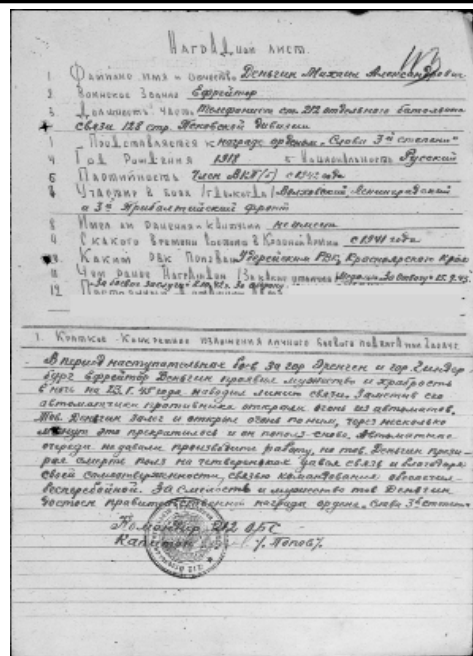 Наградной лист.
1. Фамилия имя и отчество Деньгин Михаил Александрович
2. Воинское звание Ефрейтор
3. Должность часть телефонист ст. 212 отдельного батальона
связи 128 стр. Псковской дивизии
Представляется к награде орденом "Слава 3й степени"
Год Рождения 1918 Национальность Русский
Партийность член ВКП(б) с 1942 года
Участие в боях /где, когда/ Волховский Ленинградский
и 3й Прибалтийский фронт
8 Имел ли ранения и контузии не имеет
С какого времени в Красной Армии с 1941 года
10. Каким РВК Призван РВК, Красноярского края
11 Чем ранее Награжден /За какие отличия Медаль "За Отвагу" 15.9.43.
"За боевые заслуги"
12
I. Краткое Конкретное изложение личного боевого подвига или заслуг
В период наступательных боев за гор. и гор. Гинден
бург Ефрейтор Деньгин проявил мужество и храбрость
в ночь на 23.1.45 года наводил линию связи. Заметив его
автоматчики противника открыли огонь из автоматов.
Тов. Деньгин залег и открыл огонь по ним, через несколько
минут это прекратилось и он пополз снова. Автоматные
очереди не давали производить работу, но тов. Деньгин прези-
рая смерть полз на четвереньках давал связь и благодаря
своей самоотверженности, связью командования обеспечил
бесперебойной. За смелость и мужество тов Деньгин
достоин правительственной награды ордена "Слава 3й степени"
Командир 212 ОБС
Капитан /Попов/.